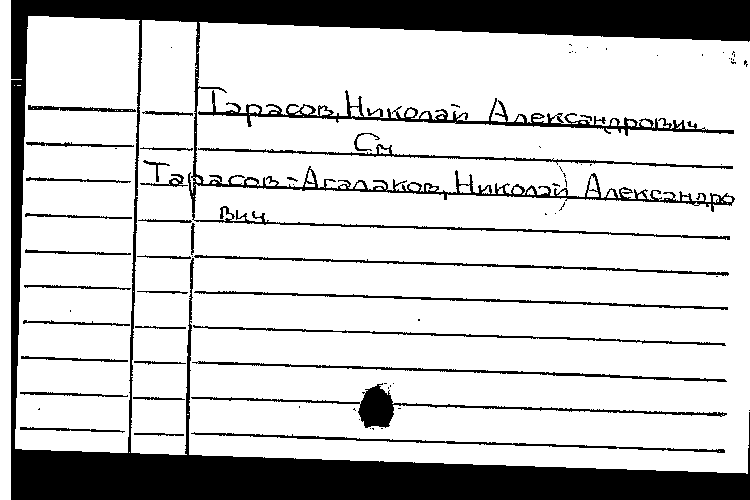 Тарасов, Николай Александрович
См
Тарасов-Агалаков, Николай Александро
вич